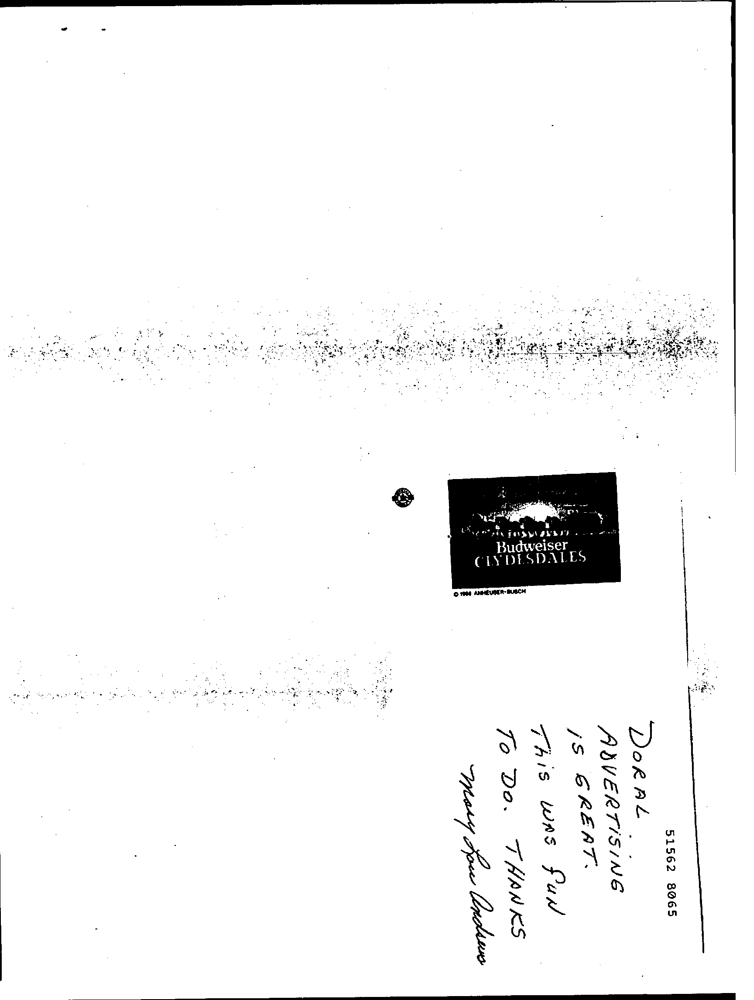 Budweiser
CLYDESDALES
© 1988 ANHEUSER-BUSCH
DORAL..
ADVERTISING
IS GREAT.
THIS WAS FUN
TO DO. THANKS
Mary Lou Andrews
51562 8065